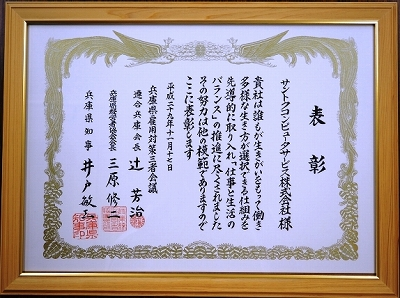 表彰
サントクコンピュータサービス株式会社様
貴社は誰もが生きがいをもって働き
多様な生き方が選択できる仕組みを
先導的に取り入れ「仕事と生活の
バランス」の推進に尽くされました
その努力は他の模範でありますので
ここに表彰します
平成二十九年十一月十七日
兵庫県雇用対策三者会議
連合兵庫会長 辻 芳治
兵庫県経営者協会会長 三原修二
兵庫県知事 井戸敏三